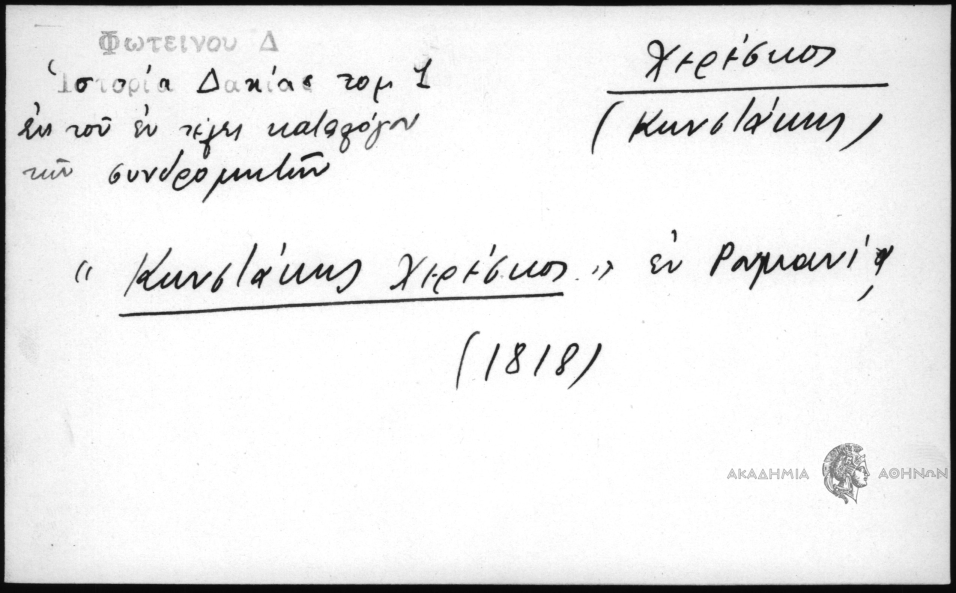 Φωτεινου Δ
Χερέσκος
Ἱστορία Δακίας τομ 1
(Κωνστάκης)
ἐκ τοῦ ἐν τέλει καταλόγου
τῶν συνδρομητῶν
"Κωνστάκης Χερέσκος" ἐν Ρουμανίᾳ
(1818)
ΑΚΑΔΗΜΙΑ ΑΘΗΝΩΝ